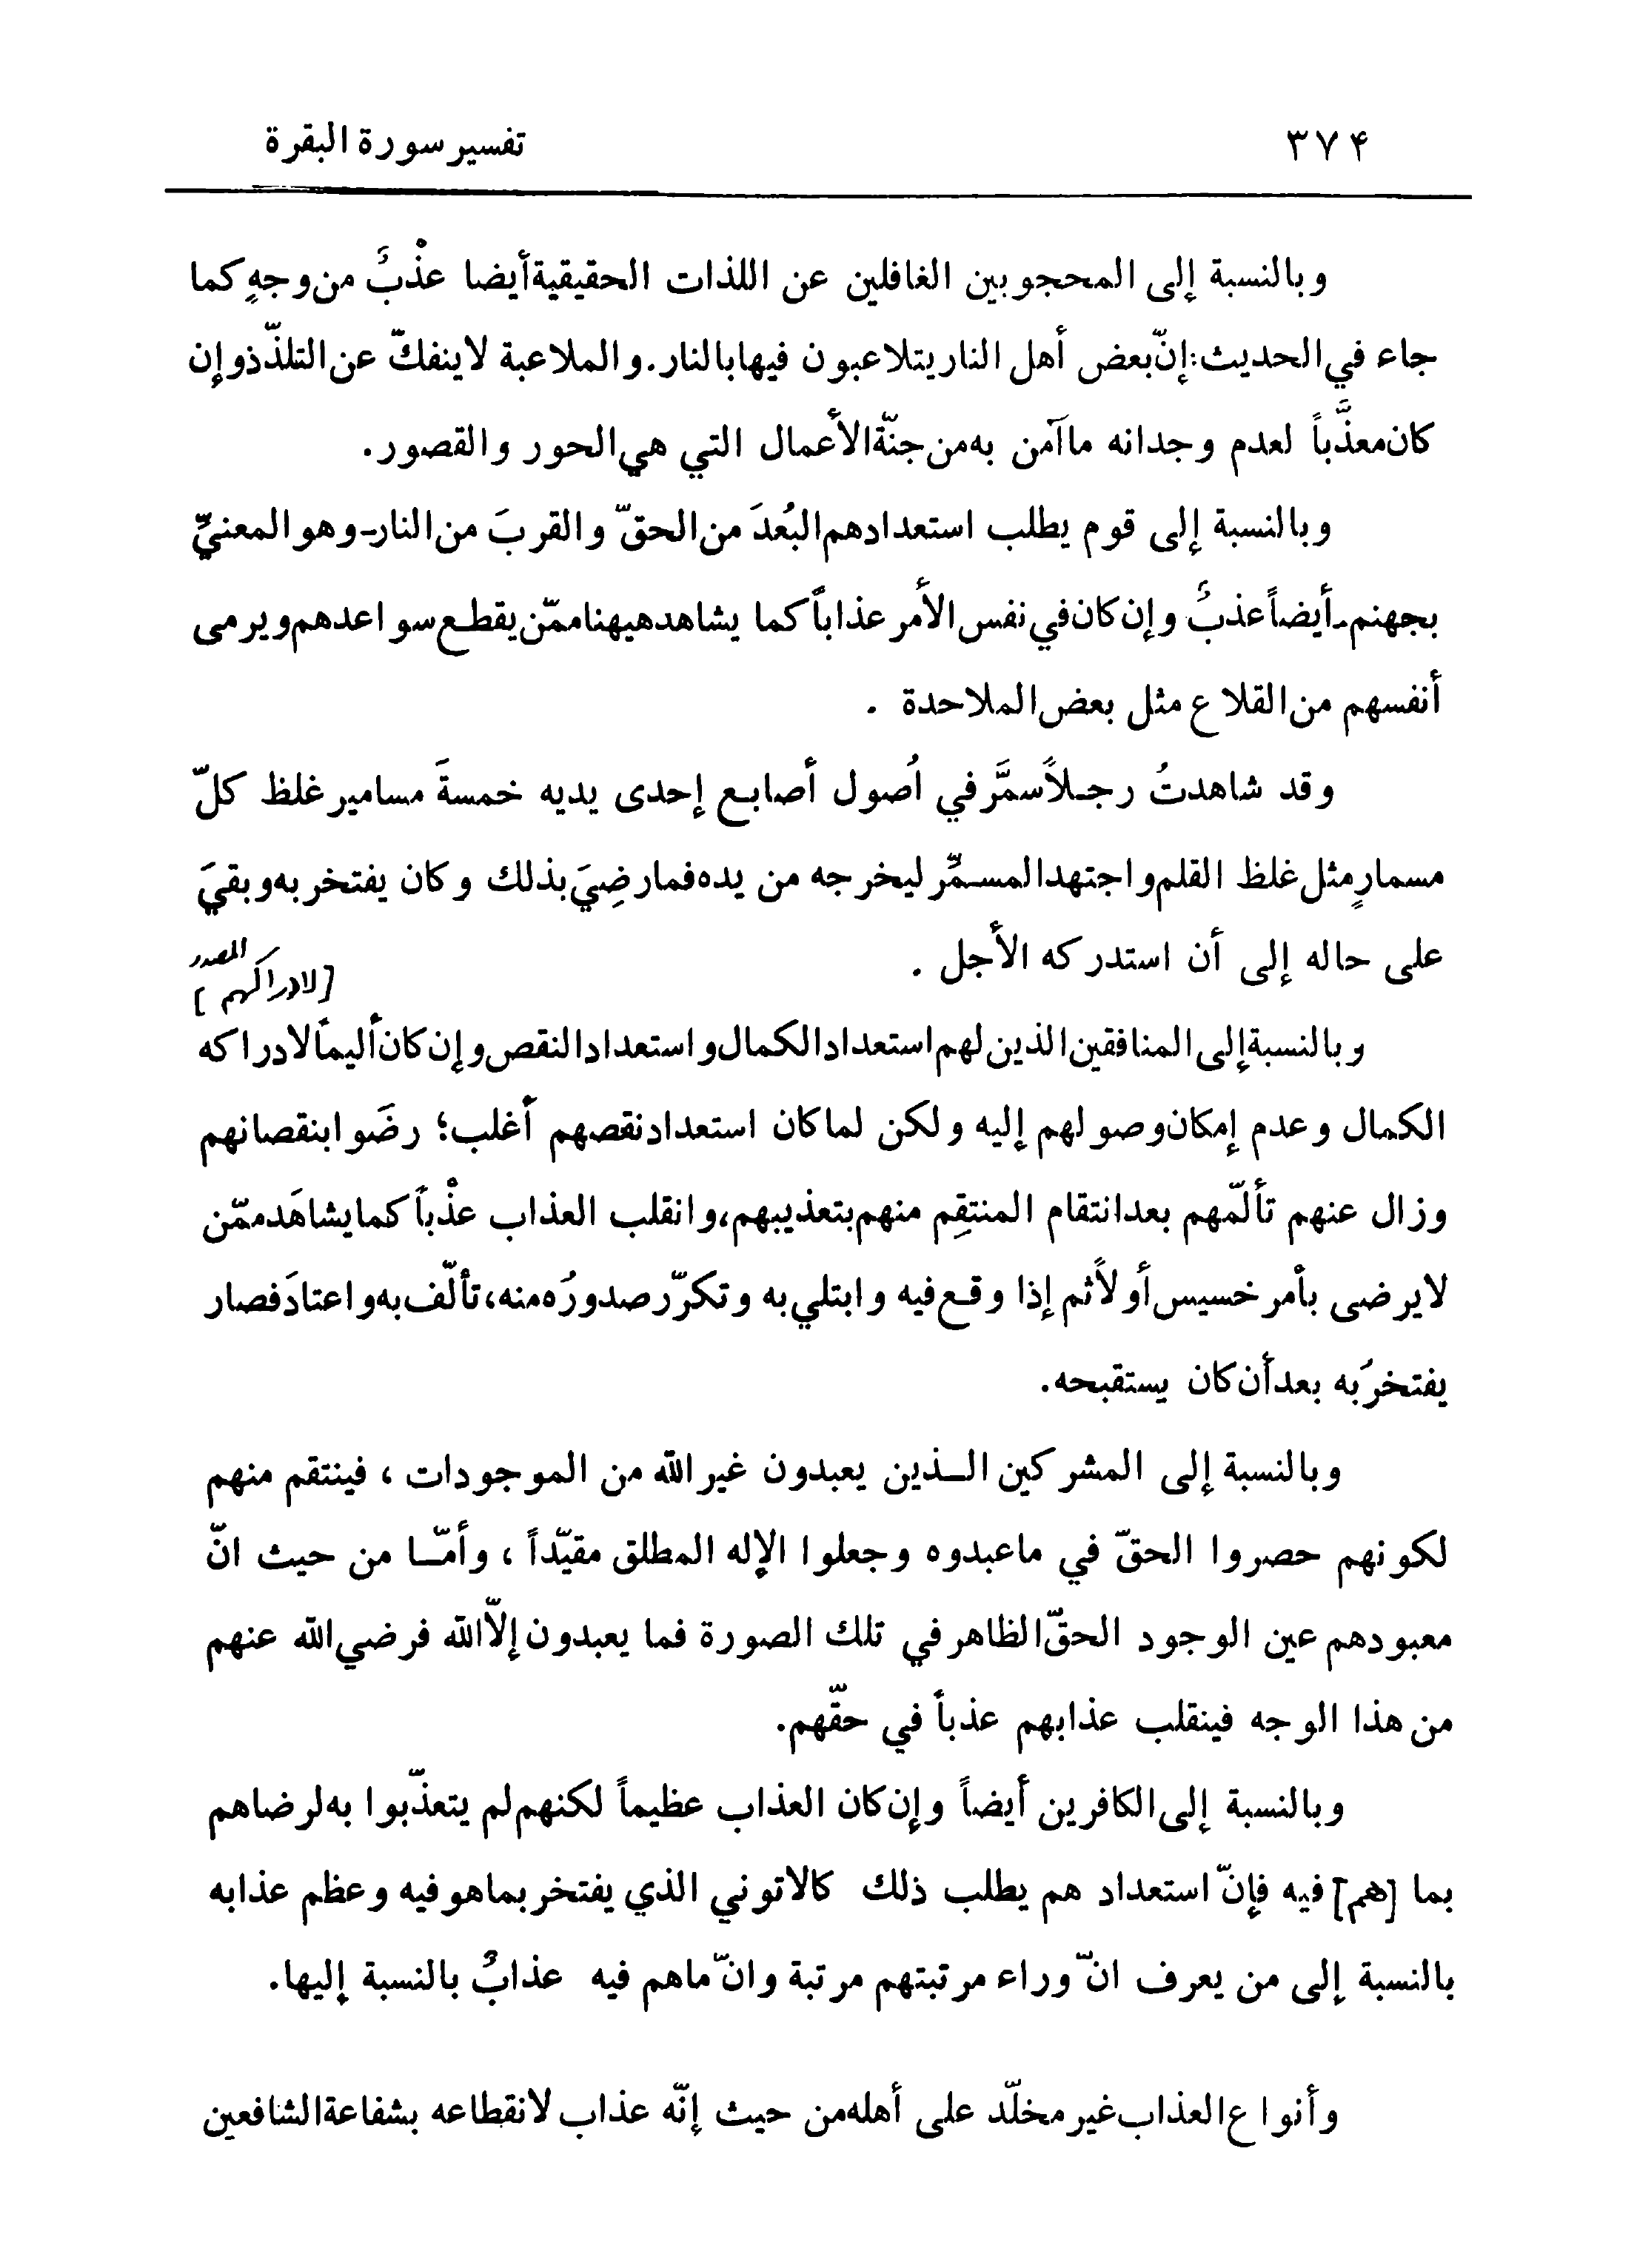 ۳۷۴ تفسير سورة البقرة
وبالنسبة إلى المحجوبين الغافلين عن اللذات الحقيقية أيضا عذْبٌ من وجهٍ كما
جاء في الحديث: إنّ بعض أهل النار يتلاعبون فيها بالنار. والملاعبة لاينفكّ عن التلذّذ وإن
كان معذَّباً لعدم وجدانه ماآمن به من جنّة الأعمال التي هي الحور والقصور.
وبالنسبة إلى قوم يطلب استعدادهم البُعدَ من الحقّ والقربَ من النار-وهو المعنيّ
بجهنم-أيضاً عذبٌ وإن كان في نفس الأمر عذاباً كما يشاهد هيهنا ممّن يقطع سواعدهم ويرمى
أنفسهم من القلاع مثل بعض الملاحدة .
وقد شاهدتُ رجلاً سمَّر في اُصول أصابع إحدى يديه خمسةَ مسامير غلظ كلّ
مسمارٍ مثل غلظ القلم واجتهد المسمِّر ليخرجه من يده فما رضِيَ بذلك وكان يفتخر به وبقيَ
على حاله إلى أن استدركه الأجل .
المصدر
[لادراكهم]
وبالنسبة إلى المنافقين الذين لهم استعداد الكمال واستعداد النقص وإن كان أليماً لادراكه
الكمال وعدم إمكان وصولهم إليه ولكن لما كان استعداد نقصهم أغلب؛ رضَوا بنقصانهم
وزال عنهم تألّمهم بعد انتقام المنتقِم منهم بتعذيبهم، وانقلب العذاب عذْباً كما يشاهَد ممّن
لايرضى بأمر خسيس أولاً ثم إذا وقع فيه وابتلي به وتكرّر صدورُه منه، تألّف به واعتادَ فصار
يفتخرُ به بعد أن كان يستقبحه.
وبالنسبة إلى المشركين الـذين يعبدون غير الله من الموجودات ، فينتقم منهم
لكونهم حصروا الحقّ في ماعبدوه وجعلوا الإله المطلق مقيّداً ، وأمّـا من حيث انّ
معبودهم عين الوجود الحقّ الظاهر في تلك الصورة فما يعبدون إلاّ الله فرضي الله عنهم
من هذا الوجه فينقلب عذابهم عذباً في حقّهم.
وبالنسبة إلى الكافرين أيضاً وإن كان العذاب عظيماً لكنهم لم يتعذّبوا به لرضاهم
بما [هم] فيه فإنّ استعداد هم يطلب ذلك كالاتوني الذي يفتخر بما هو فيه وعظم عذابه
بالنسبة إلى من يعرف انّ وراء مرتبتهم مرتبة وانّ ماهم فيه عذابٌ بالنسبة إليها.
وأنواع العذاب غير مخلّد على أهله من حيث إنّه عذاب لانقطاعه بشفاعة الشافعين